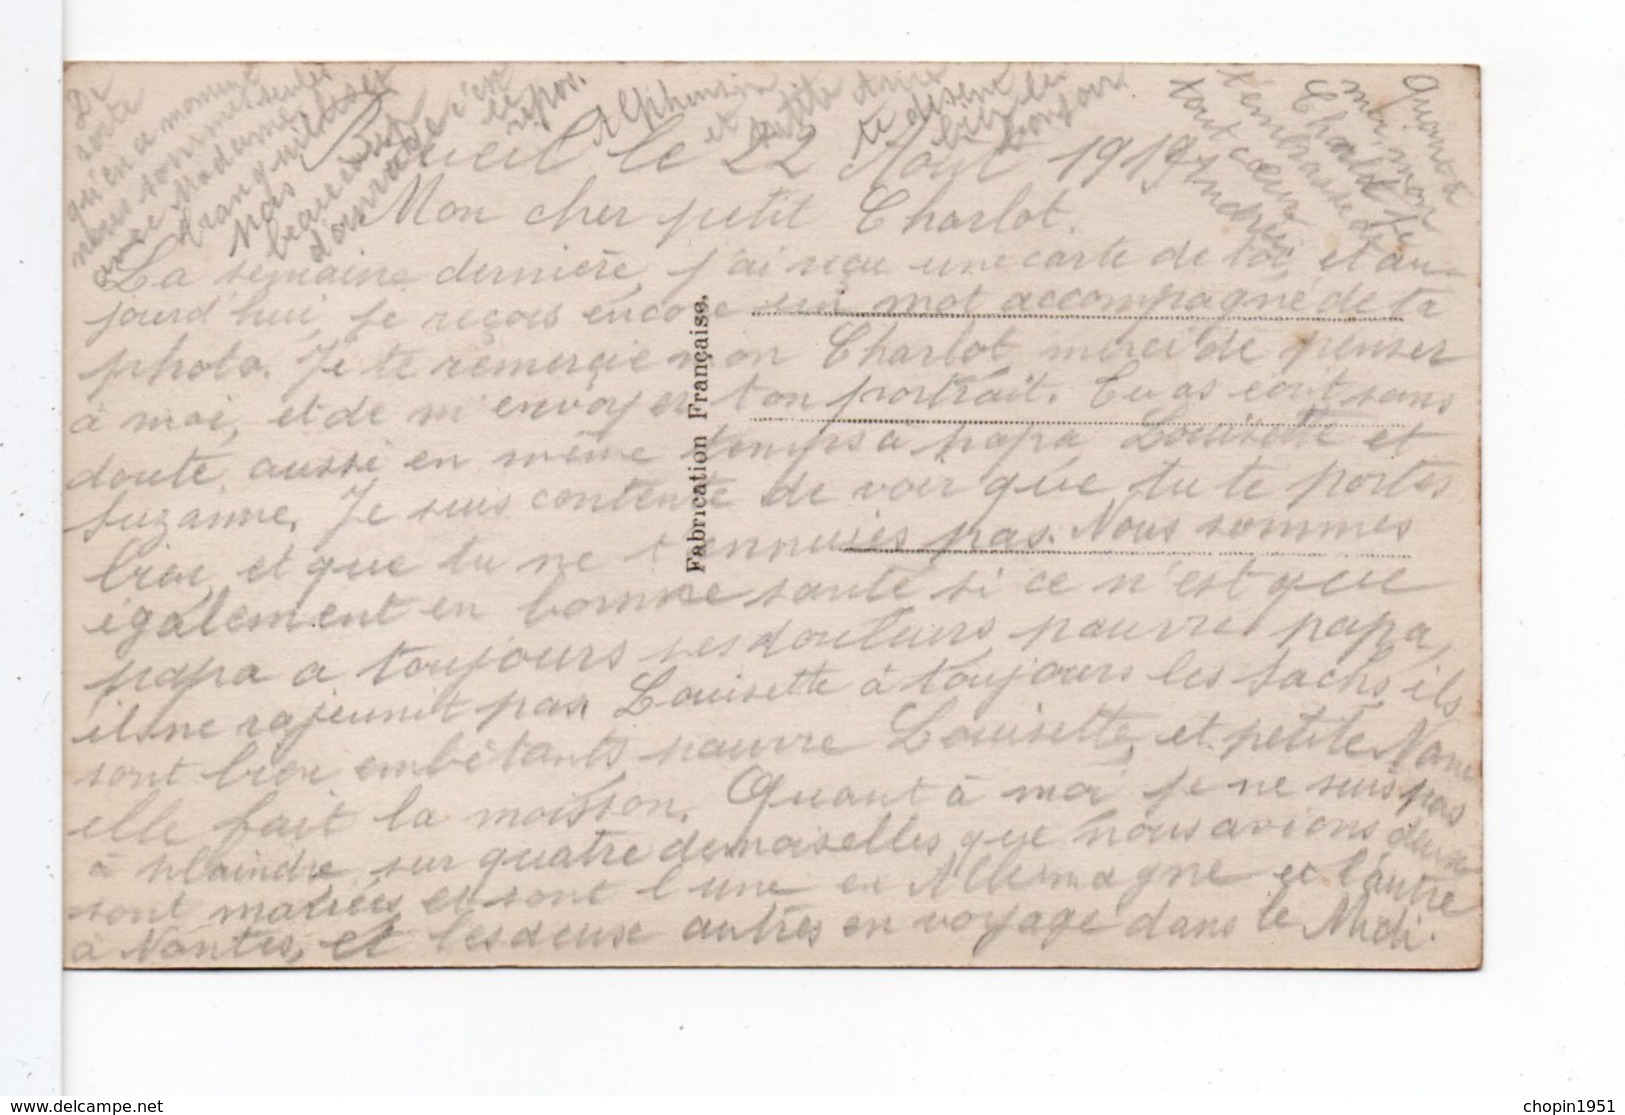 Rueil le 22 Août 1919
Mon cher petit Charlot.
La semaine dernière, j'ai reçu une carte de toi, et au-
jourd'hui, je reçois encore un mot accompagné de ta
photo. Je te remercie mon Charlot, merci de penser
à moi, et de m'envoyer ton portrait. Tu as écrit sans
doute aussi en même temps à papa Louisette et
Suzanne. Je suis contente de voir que tu te portes
bien, et que tu ne t'ennuies pas. Nous sommes
également en bonne santé si ce n'est que
papa a toujours ses douleurs, pauvre papa,
il ne rajeunit pas. Louisette à toujours les sachs ils
sont bien embêtants pauvre Louisette, et petite Nane
elle fait la moisson. Quant à moi je ne suis pas
à plaindre, sur quatre demoiselles que nous avions deux
sont mariées et sont l'une en Allemagne et l'autre
à Nantes, et les deux autres en voyage dans le Midi.
De
sorte
qu'en ce moment
nous sommes seules
avec Madame
tranquilles
Mais
beaucoup
d'ouvrage c'est
le
repos.
Alphonsine
et petite
te disent
bien le
bonjour.
Quant à
moi mon
Charlot je
t'embrasse de
tout cœur
Fabrication Française.
www.delcampe.net
chopin1951